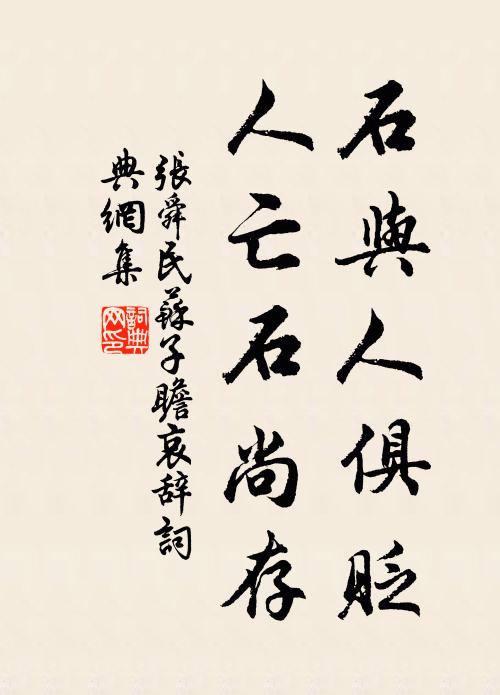 石與人俱貶
人亡石尚存
張舜民蘇子瞻哀辞詞
典網集
詞典
网印